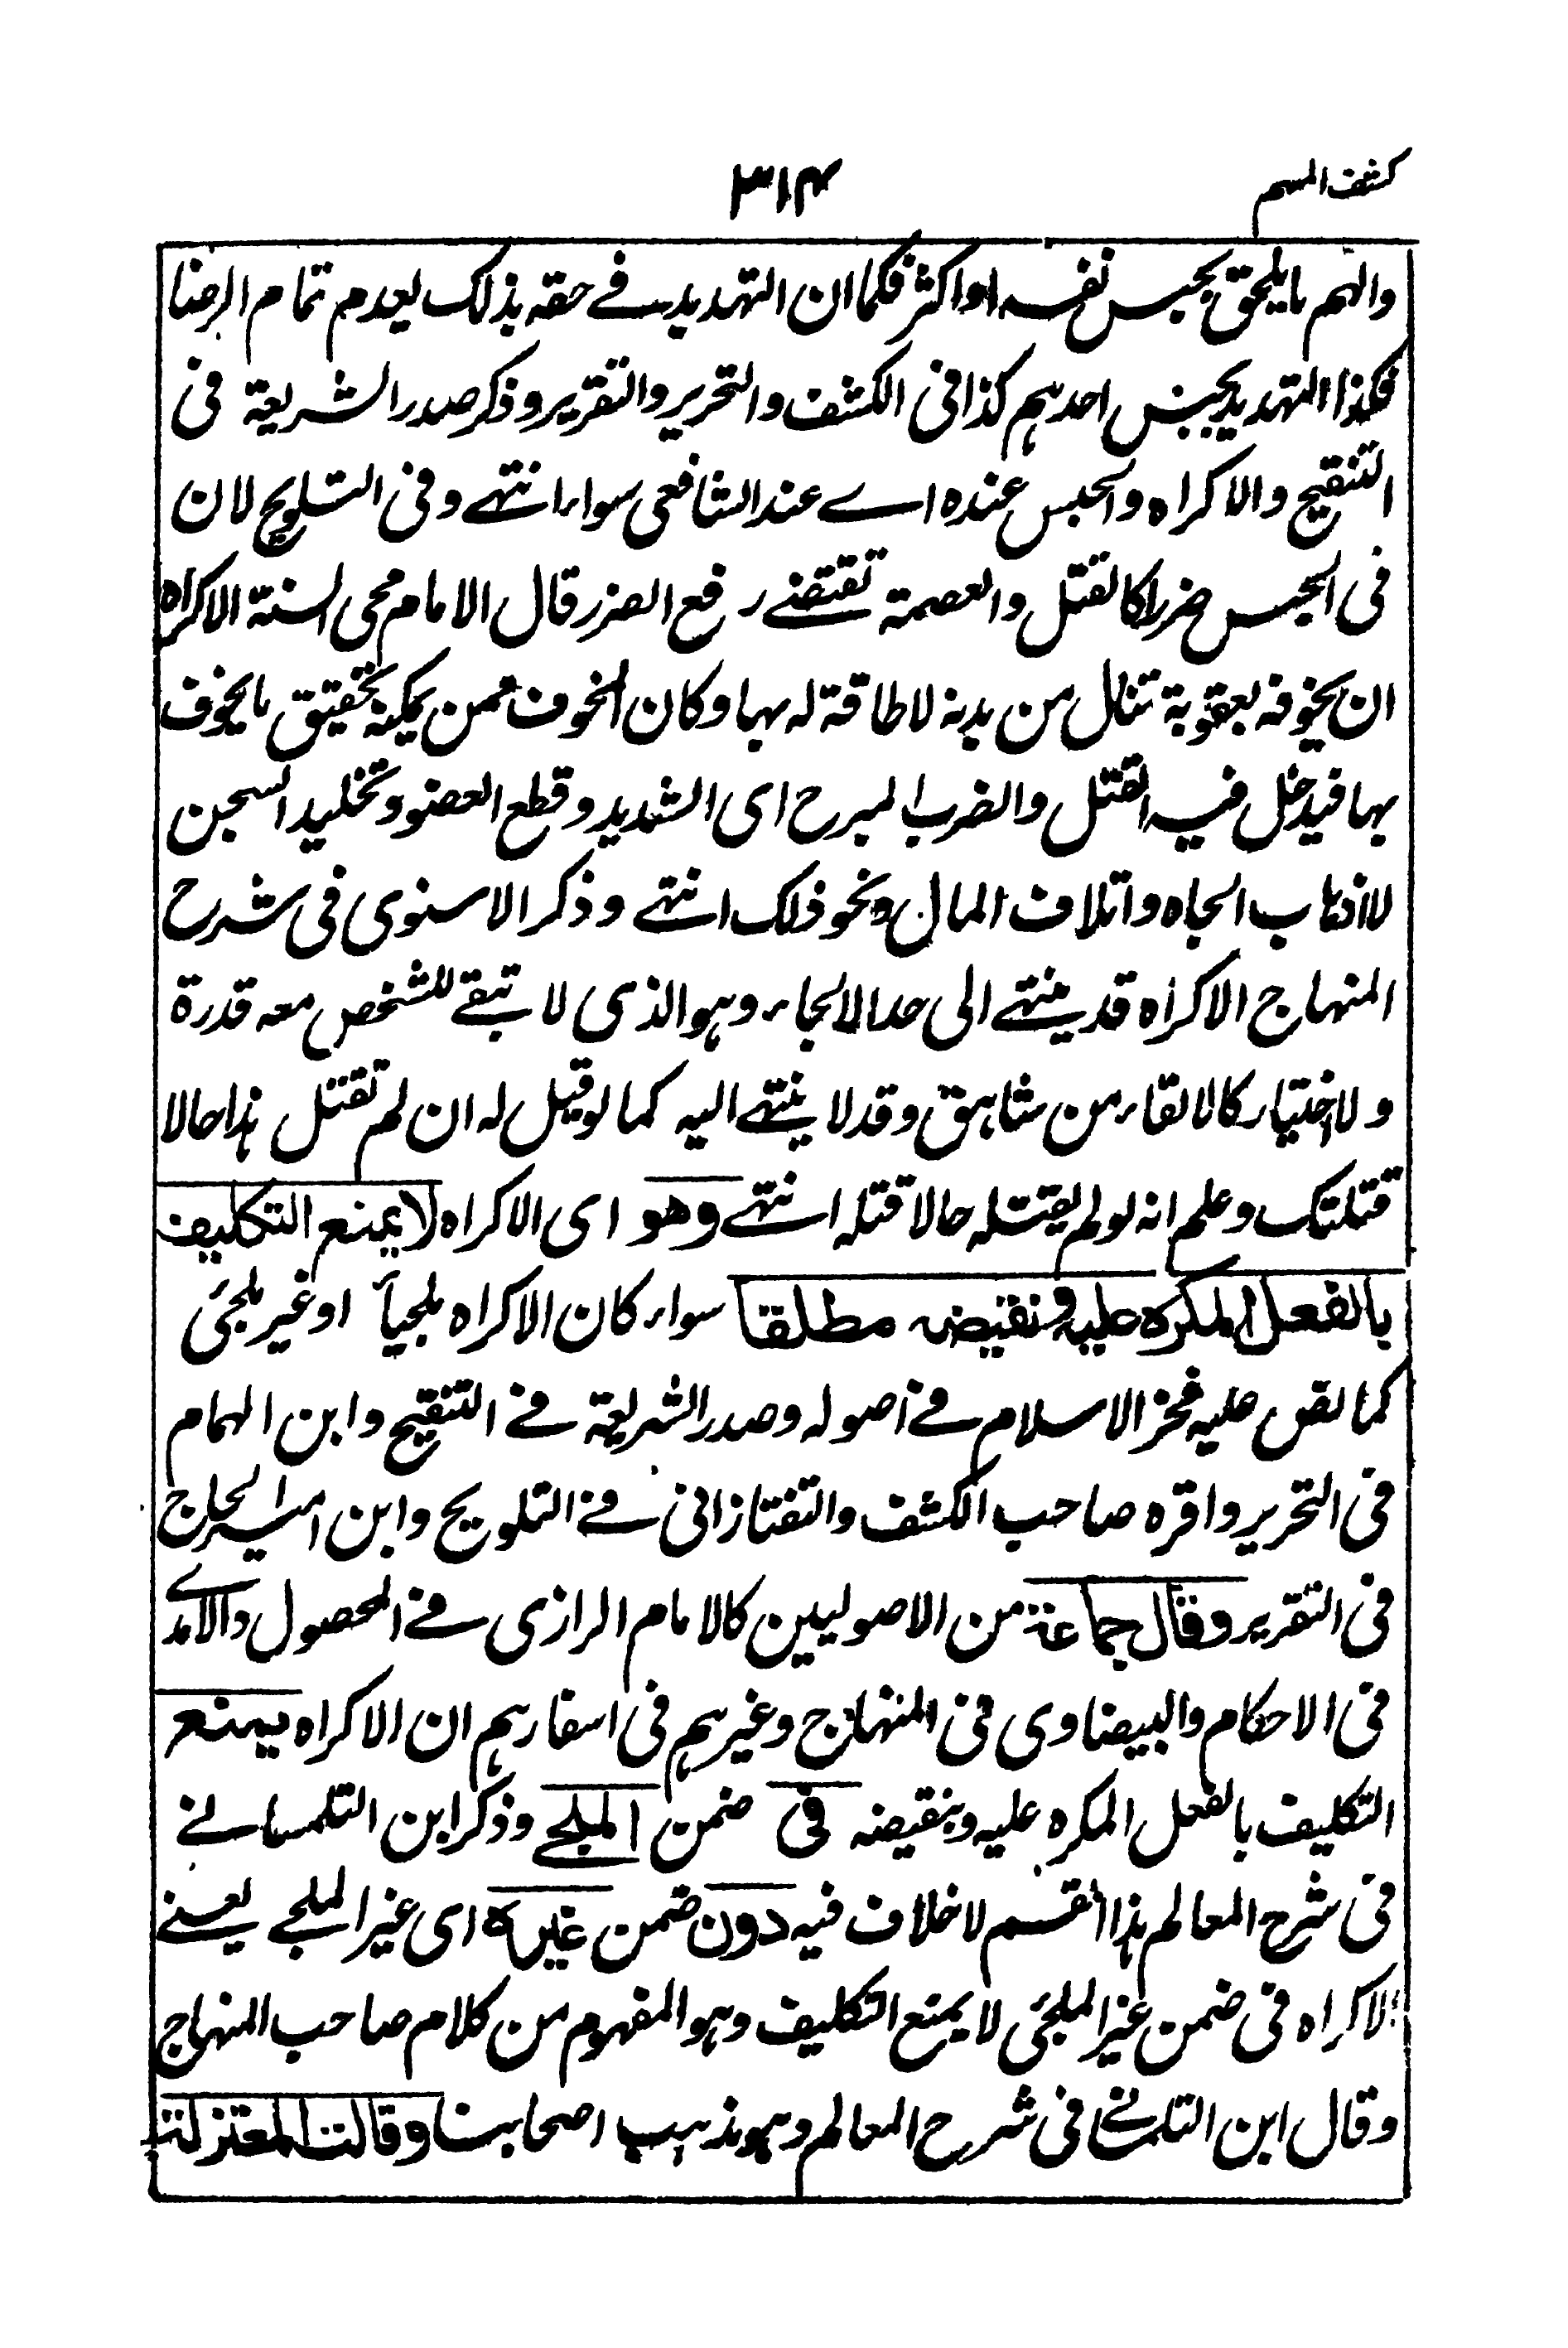 كشف المبهم
٣١٤
والهم ما يلحق بحبس نفسه او اكثر فكما ان التهديد في حقه بذلك يعدم تمام الرضا
فكذا التهديد بحبس احدهم كذا في الكشف والتحرير والتقرير وذكر صدر الشريعة في
التنقيح والاكراه والحبس عنده اى عند الشافعي سواء انتهى وفي التلويح لان
في الحبس ضررا كالقتل والعصمة تقتضى رفع الضرر قال الامام محي السنة الاكراه
ان يخوفه بعقوبة تنال من بدنه لا طاقة له بها وكان المخوف ممن يمكنه تحقيق ما يخوف
بها فيدخل فيه القتل والضرب المبرح اى الشديد وقطع العضو وتخليد السجن
لا اذهاب الجاه واتلاف المال ونحو ذلك انتهى وذكر الاسنوى في شرح
المنهاج الاكراه قد ينتهى الى حد الالجاء وهو الذى لا تبقى للشخص معه قدرة
ولا اختيار كالالقاء من شاهق وقد لا ينتهى اليه كما لو قيل له ان لم تقتل هذا حالا
قتلتك وعلم انه لو لم يقتله حالا قتله انتهى وهو اى الاكراه لا يمنع التكليف
بالفعل المكره عليه ونقيضه مطلقا سواء كان الاكراه ملجيأ او غير ملجئ
كما نص عليه فخر الاسلام في اصوله وصدر الشريعة في التنقيح وابن الهمام
في التحرير واقره صاحب الكشف والتفتازاني في التلويح وابن امير الحاج
في التقرير وقال جماعة من الاصوليين كالامام الرازى في المحصول والآمدى
في الاحكام والبيضاوى في المنهاج وغيرهم في اسفارهم ان الاكراه يمنع
التكليف بالفعل المكره عليه وبنقيضه في ضمن الملجى وذكر ابن التلمسانى
في شرح المعالم هذا القسم لا خلاف فيه دون ضمن غيره اى غير الملجى يعنى
الاكراه في ضمن غير الملجئ لا يمنع التكليف وهو المفهوم من كلام صاحب المنهاج
وقال ابن التلمسانى في شرح المعالم وهو مذهب اصحابنا وقالت المعتزلة